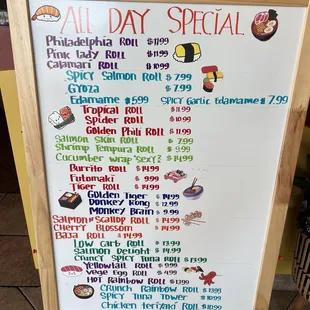 ALL DAY SPECIAL
Philadelphia ROLL $11.99
Pink Lady ROLL $11.99
Calamari ROLL $10.99
Spicy Salmon Roll $7.99
Gyoza $7.99
Edamame $5.99 Spicy Garlic Edamame $7.99
Tropical ROLL $11.99
Spider ROLL $10.99
Golden Phili ROLL $11.99
Salmon Skin ROLL $7.99
Shrimp Tempura ROLL $9.99
Cucumber wrap "Sexy" $14.99
Burrito ROLL $14.99
Futomaki $9.99
Tiger ROLL $14.99
Golden Tiger $14.99
Donkey Kong $12.99
Monkey Brain $9.99
Salmon Scallop ROLL $14.99
Cherry Blossom $14.99
Baja ROLL $14.99
Low Carb ROLL $13.99
Salmon Delight $14.99
Crunchy Spicy Tuna ROLL $13.99
Yellowtail ROLL $9.99
Vege Egg ROLL $4.99
Hot Rainbow ROLL $13.99
Crunch Rainbow ROLL $13.99
Spicy Tuna Tower $10.99
Chicken Teriyaki ROLL $10.99